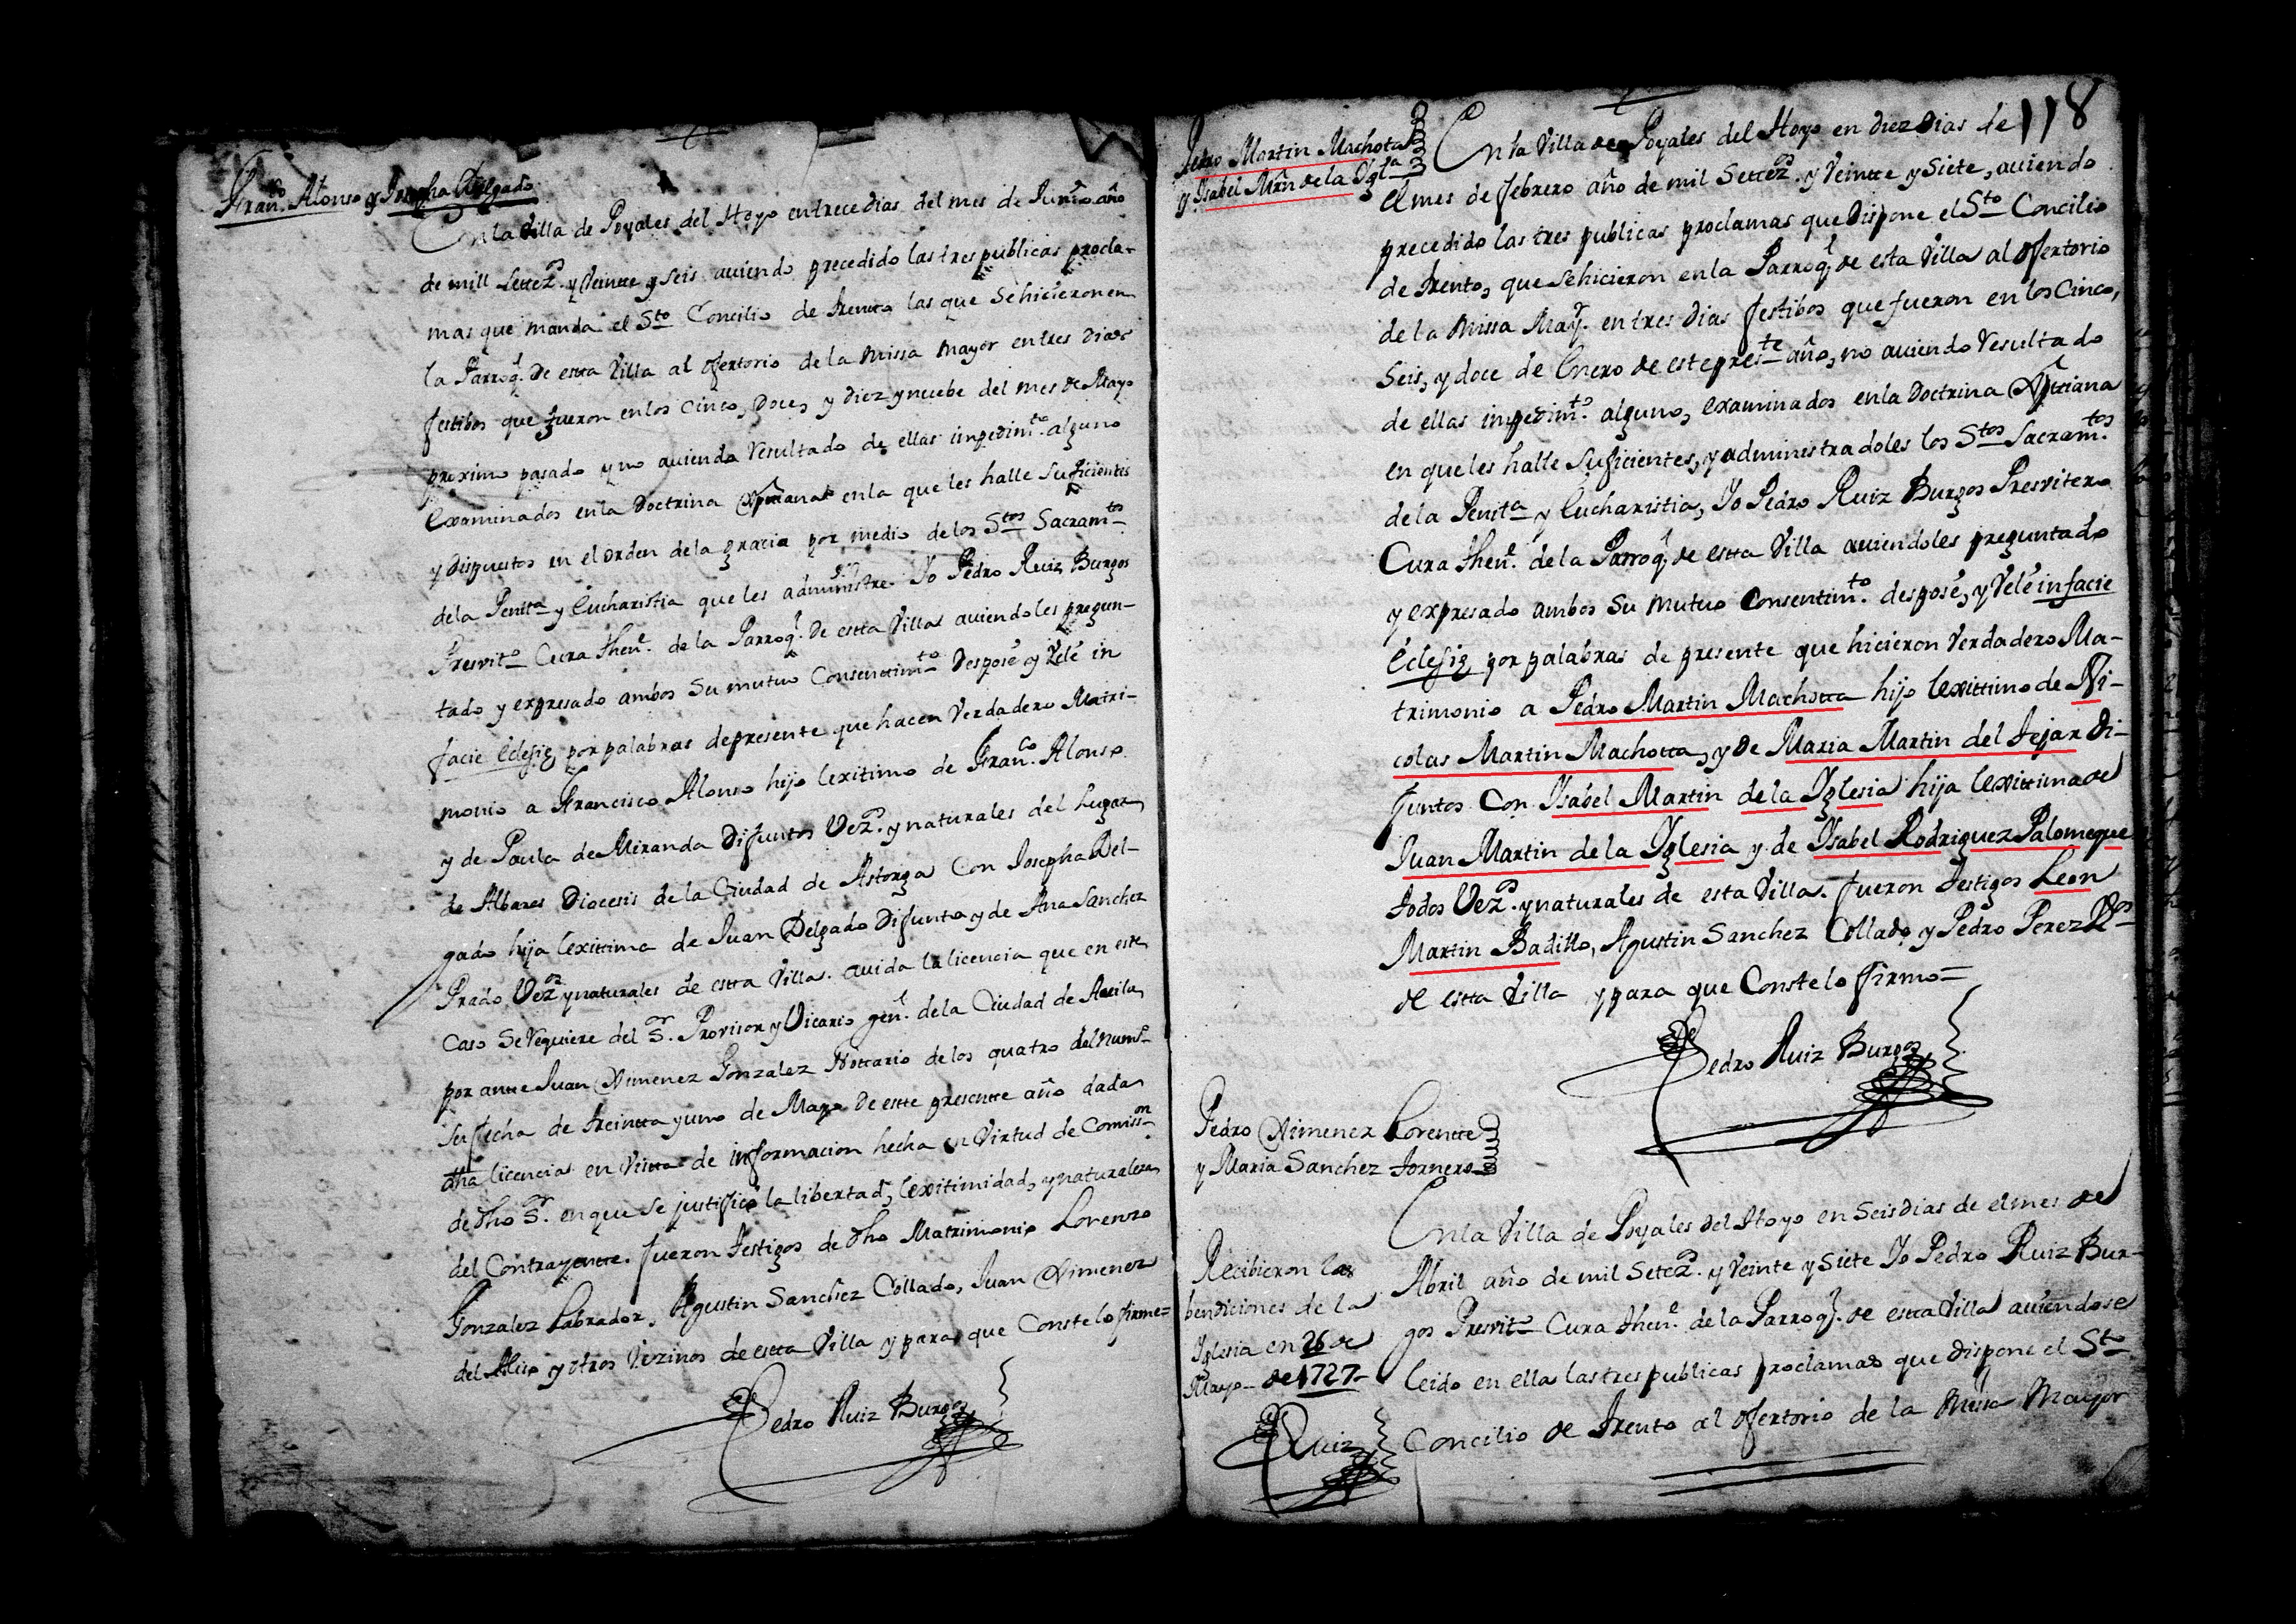 Fran.co Alonso y Josepha Delgado
En la Villa de Poyales del Hoyo en trece dias del mes de Junio año
de mill settez.os y Veintte y seis auiendo precedido las tres publicas procla-
mas que manda el Sto Concilio de Trentto las que se hicieron en
la Parroq.l de estta Villa al ofertorio de la missa mayor en tres dias
festibos que fueron en los cinco, Doce, y diez y nuebe del mes de Mayo
proximo pasado y no auiendo resultado de ellas impedim.to alguno
examinados en la Doctrina Xptiana en la que les halle suficientes
y dispuestos en el orden de la gracia por medio de los Stos Sacram.tos
de la Penit.a y Eucharistia que les administre. Yo Pedro Ruiz Burgos
Presvit.o Cura then.e de la Parroq.l de estta Villa auiendoles pregun-
tado y expresado ambos su mutuo Consenttim.to Despose y Vele in
facie Eclesię por palabras de presente que hacen Verdadero Matri-
monio a Francisco Alonso hijo lexitimo de Fran.co Alonso
y de Paula de Miranda Difuntos Vez.os y naturales del Lugar
de Albares Diocesis de la Ciudad de Astorga Con Josepha Del-
gado hija lexittima de Juan Delgado Difunto y de Ana Sanchez
Prado Vez.os y naturales de estta Villa. auida la licencia que en este
caso se requiere del S.or Provisor y Vicario gen.l de la Ciudad de Auila
por antte Juan Ximenez Gonzalez Nottario de los quatro del num.o
su fecha de treintta y uno de Mayo de estte presentte año dada
dha licencia en Vistta de informacion hecha en Virtud de Comiss.on
de dho S.or en que se justificó la libertad, lexitimidad, y naturaleza
del Contrayentte. fueron testigos de dho Matrimonio Lorenzo
Gonzalez Labrador, Agustin Sanchez Collado, Juan Ximenez
del Aliso y otros Vezinos de estta Villa y para que Conste lo firme=
Pedro Ruiz Burgos
118
Pedro Martin Machota
y Isabel Mrn de la Igl.a
En la Villa de Poyales del Hoyo en diez Dias de
el mes de febrero año de mil Settez.os y Veintte y Siete, auiendo
precedido las tres publicas proclamas que Dispone el Sto Concilio
de Trento, que se hicieron en la Parroq.l de esta Villa al ofertorio
de la Missa May.r en tres dias festibos que fueron en los Cinco,
Seis, y doce de Enero de este pres.te año, no auiendo Resultado
de ellas impedim.to alguno, examinados en la Doctrina Xptiana
en que les halle suficientes, y administradoles los Stos Sacram.tos
de la Penit.a y Eucharistia, Yo Pedro Ruiz Burgos Presvitero
Cura then.e de la Parroq.l de estta Villa auiendoles preguntado
y expresado ambos su mutuo Consentim.to despose, y Vele in facie
Eclesię por palabras de presente que hicieron Verdadero Ma-
trimonio a Pedro Martin Machotta hijo lexittimo de Ni-
colas Martin Machotta, y de Maria Martin del Tejar Di-
funtos Con Ysabel Martin de la Yglesia hija lexittima de
Juan Martin de la Yglesia y de Ysabel Rodriguez Palomeque
todos Vez.os y naturales de esta Villa. fueron testigos Leon
Martin Badillo, Agustin Sanchez Collado y Pedro Perez V.os
de estta Villa y para que Conste lo firmo=
Pedro Ruiz Burgos
Pedro Ximenez Lorentte
y Maria Sanchez Tornero
En la Villa de Poyales del Hoyo en Seis dias de el mes de
Abril año de mil Setez.os y Veinte y Siete Yo Pedro Ruiz Bur-
gos Presvit.o Cura then.e de la Parroq.l de estta Villa auiendose
leido en ella las tres publicas proclamas que dispone el Sto
Concilio de Trento al ofertorio de la Missa Mayor
Recibieron las
bendiciones de la
Yglesia en 26 de
Mayo de 1727
Ruiz